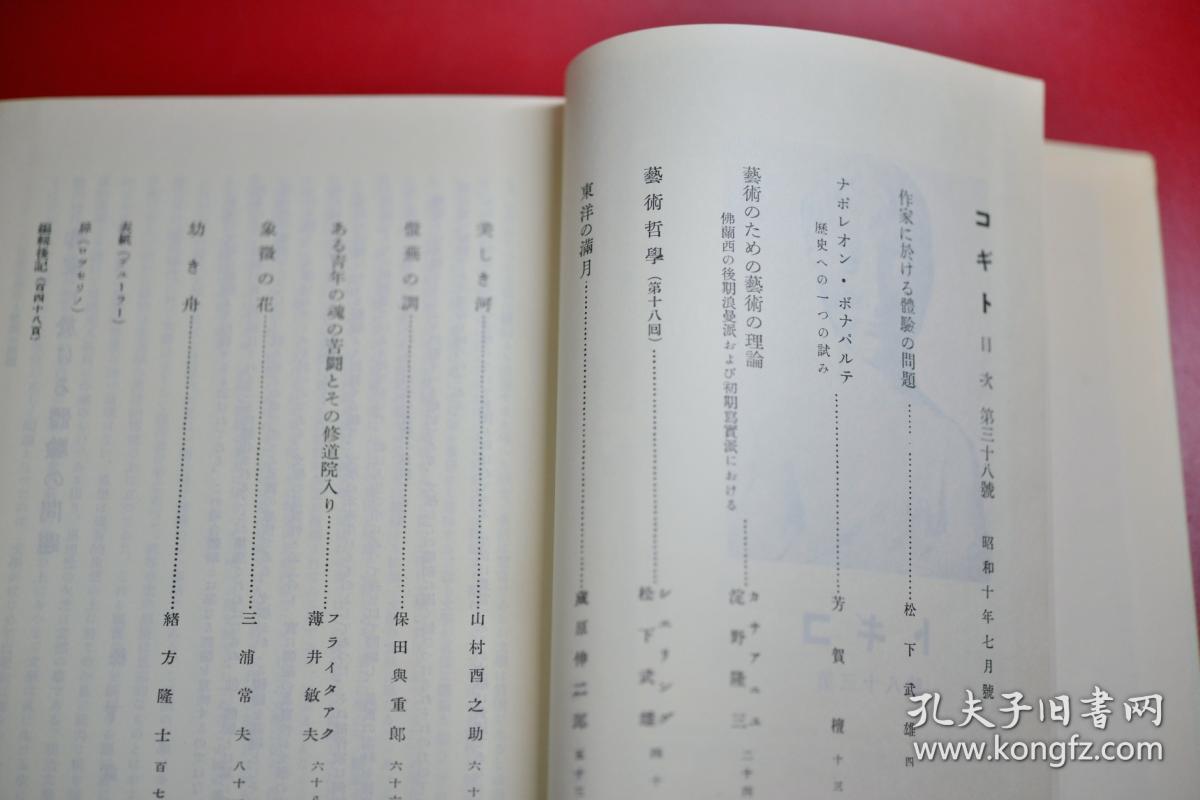 コギト 目次 第三十八號 昭和十年七月號
作家に於ける體驗の問題………松下武雄 四
ナポレオン・ボナパルテ………芳賀檀 十三
歷史への一つの試み
藝術のための藝術の理論………カサアニユ
佛蘭西の後期浪曼派および初期寫實派における
淀野隆三 二十四
藝術哲學(第十八回)………シエリング
松下武雄 四十
東洋の滿月………藏原伸二郎
美しき河………山村酉之助 六十
の調………保田與重郎 六十
ある靑年の魂の苦鬪とその修道院入り………フライタアク
薄井敏夫 六十八
象徵の花………三浦常夫 八十
幼き舟………緖方隆士 百七
表紙(デューラー)
扉(ロツセリノ)
編輯後記(百四十八頁)
コギト
孔夫子旧书网
www.kongfz.com